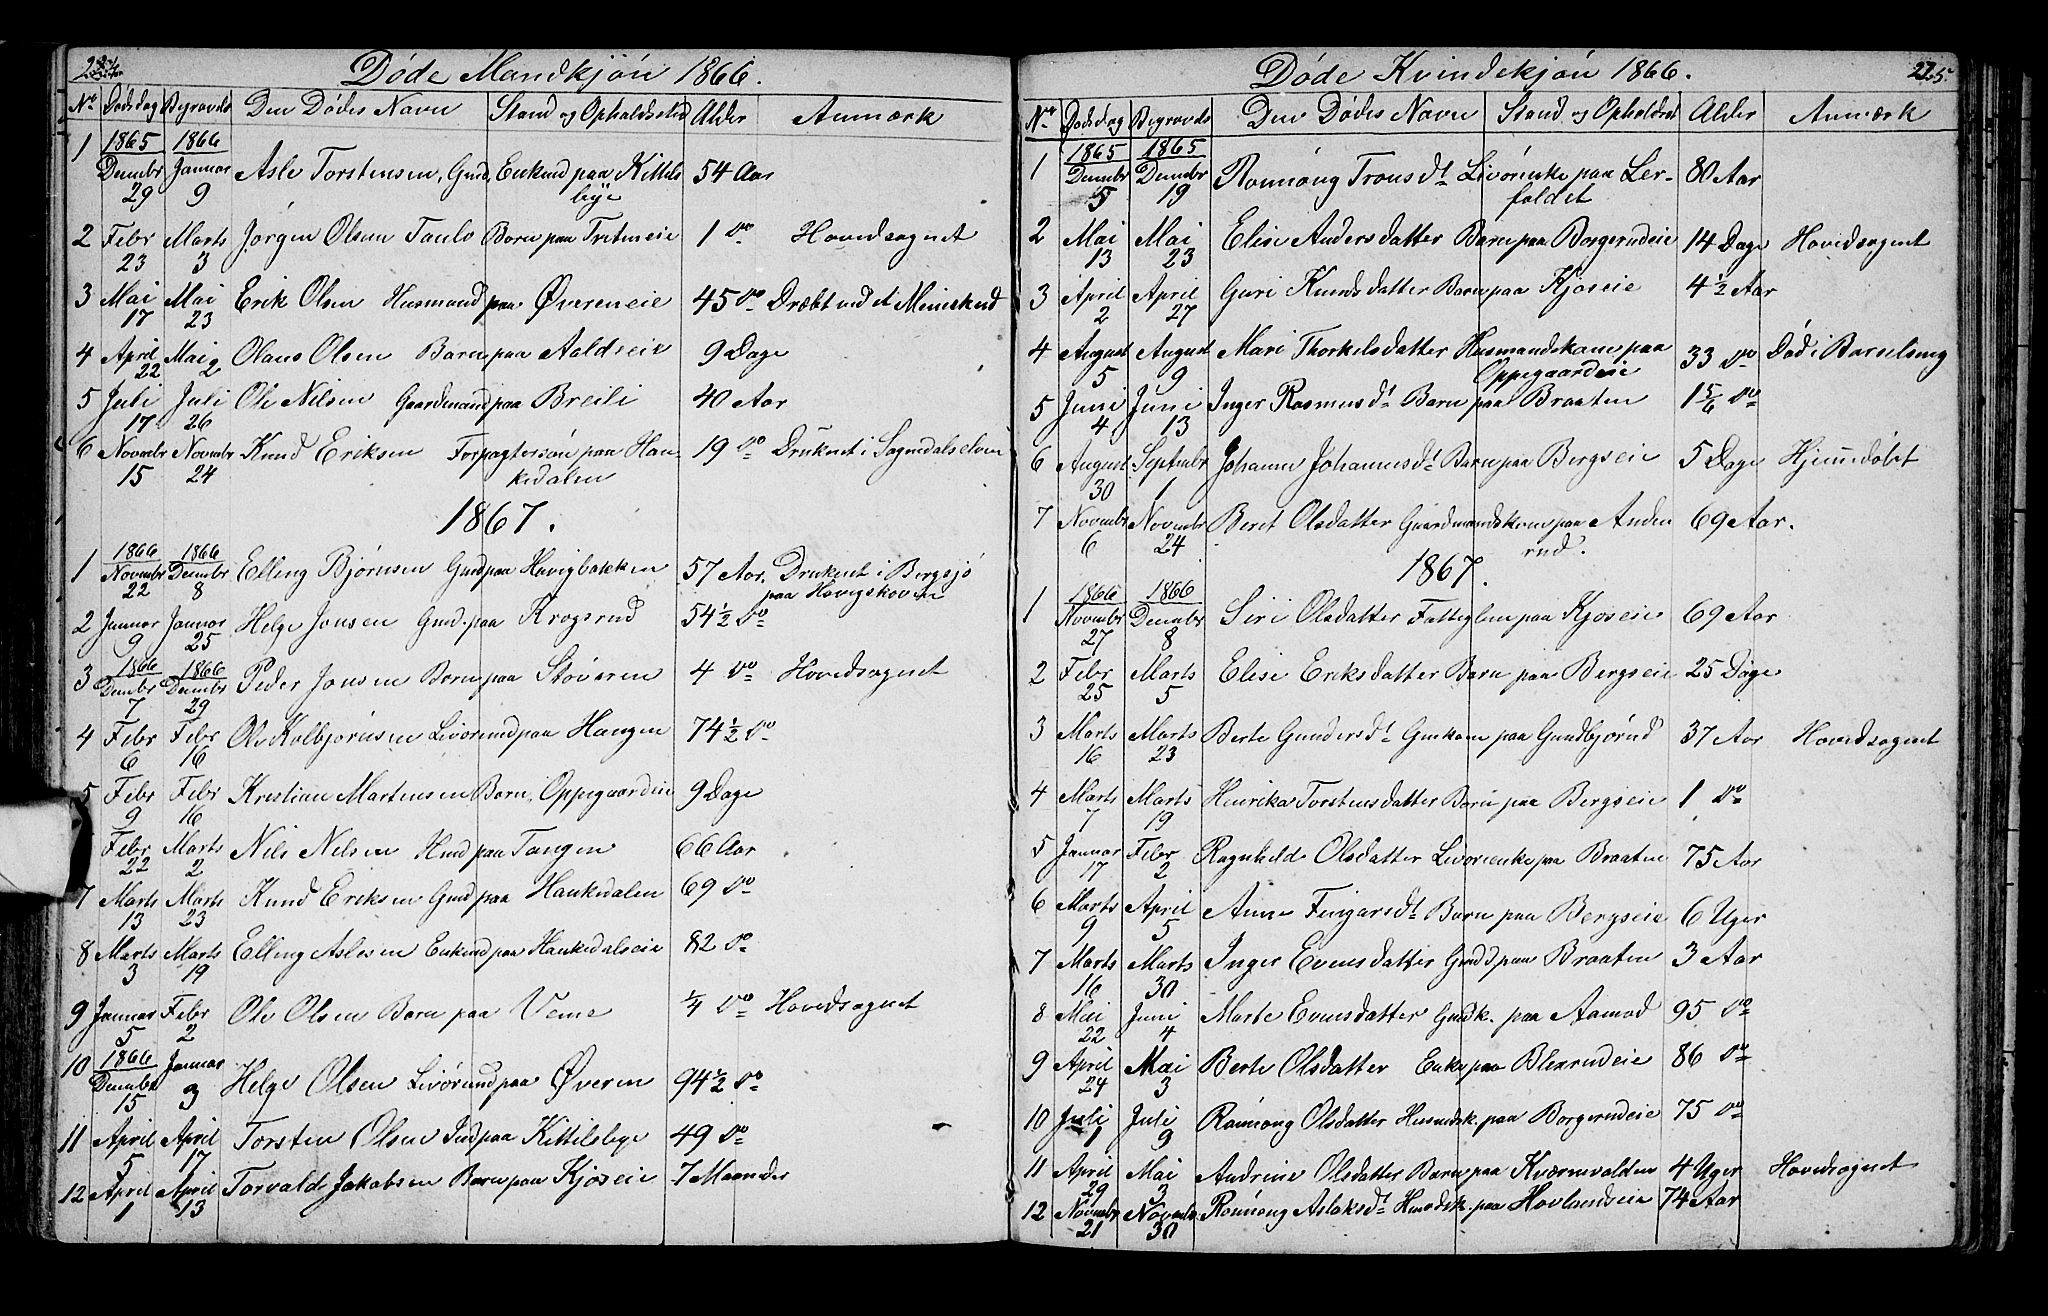 Døde Mandkjøn 1866.
No Dødsdag Begravds Den Dødes Navn Stand og Opholdssted Alder Anmærk
1 1865 Decembr 29 1866 Januar 9 Asle Torstensen, Gmd, Enkmd paa Kittels
bye 54 Aar
2 Febr 23 Marts 3 Jørgen Olsen Barn paa 1 do Hovedsognet
3 Mai 17 Mai 23 Erik Olsen Husmand paa Øvereneie 45 do Dræbt ved et
4 April 22 Mai 2 Olaus Olsen Barn paa 9 Dage
5 Juli 17 Juli 26 Ole Nilsen Gaardmand paa Breili 40 Aar
6 Novembr 15 Novembr 24 Knud Eriksen Forpagtersøn paa Han-
kedalen 19 do Druknet i Sogndalselven
1867.
1 1866 Novembr 22 1866 Decembr 8 Elling Bjørnsen Gmd paa Høvigbakken 57 Aar. Druknet i Bergsjø
paa Høvigskoven
2 Januar 9 Januar 25 Helge Jonsen Gmd. paa Krogsrud 54 1/2 do
3 1866 Decembr 7 1866 Decembr 29 Peder Jonsen Barn paa Støveren 4 do Hovedsognet
4 Febr 6 Febr 16 Ole Kolbjørnsen Livørmd paa Haugen 74 1/2 do
5 Febr 9 Febr 16 Kristian Martensen Barn, Oppegaardeie 9 Dage
Febr 22 Marts 2 Nils Nilsen Hmd paa Tangen 66 Aar
7 Marts 13 Marts 23 Knud Eriksen Gmd paa Hankedalen 69 do
8 Marts 3 Marts 19 Elling Aslesen Enkmd paa Hankedalseie 82 do
9 Januar 5 Febr 2 Ole Olsen Barn paa Veme 1/4 do Hovedsognet
10 1866 Decembr 15 Januar 3 Helge Olsen Livørmd paa Øveren 94 1/2 do
11 April 5 April 17 Torsten Olsen Ind paa Kittilsbye 49 do
12 April 1 April 13 Torvald Jakobsen Barn paa Kjøseie 7 Maaneder
Døde Kvindekjøn 1866.
No Dødsdag Begravds Den Dødes Navn Stand og Opholdsst Alder Anmærk
1 1865 Decembr 5 1865 Decembr 19 Rønnøug Tronsdt Livørenke paa Ler-
faldet 80 Aar
2 Mai 13 Mai 23 Elise Andersdatter Barn paa Borgerudeie 14 Dage Hovedsognet
3 April 2 April 27 Guri Knudsdatter Barn paa Kjøseie 4 1/2 Aar
4 August 5 August 9 Mari Thorkelsdatter Husmandskone paa
Oppegaardeie 33 do Død i Barselseng
5 Juni 4 Juni 13 Inger Rasmusdt Barn paa Braaten 1 5/6 do
6 August 30 Septembr 1 Johanne Johannesdt Barn paa Bergseie 5 Dage Hjemmedøbt
7 Novembr 6 Novembr 24 Beret Olsdatter Gaardmandskone paa Anden
rud. 69 Aar.
1867.
1 1866 Novembr 27 1866 Decembr 8 Siri Olsdatter Fattiglem paa Kjøseie 69 Aar
2 Febr 25 Marts 5 Elise Eriksdatter Barn paa Bergseie 25 Dage
3 Marts 16 Marts 23 Berte Gundersdt Gmkone paa Gundbjørud 37 Aar Hovedsognet
4 Marts 7 Marts 19 Henrika Torstensdatter Barn paa Bergseie 1 do
5 Januar 17 Febr 2 Ragnhild Olsdatter Livørenke paa Braaten 75 Aar
6 Marts 9 April 5 Anne Fingarsdt Barn paa Bergseie 6 Uger
7 Marts 16 Marts 30 Inger Evensdatter Gmdd paa Braaten 3 Aar
8 Mai 22 Juni 4 Marte Evensdatter Gmdk. paa Aamod 95 do
9 April 24 Mai 3 Berte Olsdatter Enke paa Blexrudeie 86 do
10 Juli 1 Juli 9 Rønnoug Olsdatter Husmdsk. paa Borgerudeie 75 do
11 April 29 Mai 3 Andrine Olsdatter Barn paa Kværnvolden 4 Uger Hovedsognet
12 Novembr 21 Novembr 30 Rønnøug Aslaksdt Husmdsk. paa Hovlandseie 74 Aar